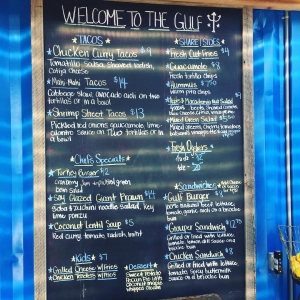 WELCOME TO THE GULF
TACOS
Chicken Curry Tacos $9
Tomatillo Salsa shaved radish
Cotija cheese
Mahi Mahi Tacos $14
Cabbage slaw avocado cash on two
tortillas or in a bowl
Shrimp Street Tacos $13
Pickled red onions avocado lime
cilantro sauce on two tortillas or
in a bowl
Chef's Specials
Turkey Burger $12
Cranberry Jam
bam salad
Soy Glazed Grant Prawn $14
Soba zucchini noodle salad key
lime ponzu
Coconut Lentil Soup $5
Red curry tomato radish
Kids $7
Grilled Cheese w/fries
Chicken Tenders w/fries
Dessert
Sweet Potato
Pecan Pie
Coconut
whipped cream
SHARE/SIDES
Fresh Cut Fries $4
Guacamole $8
fresh tortilla chips
Hummus $7.50
warm pita chips
Mixed Green Salad
Mixed greens, Cherry tomatoes
Fresh Oysters
Sandwiches
Gulf Burger
lettuce
tomato garlic aioli on a
brioche bun
Grouper Sandwich
Grilled or fried with lettuce
tomato, lemon dill sauce on a
brioche bun
Chicken Sandwich
Grilled or fried with lettuce,
tomato, spicy buttermilk
sauce on a brioche bun